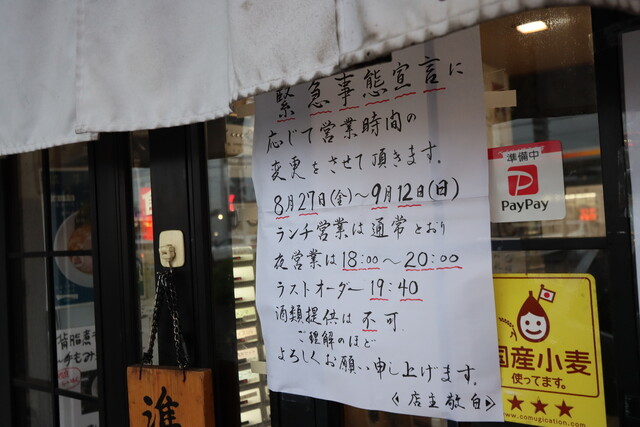 緊急事態宣言に
応じて営業時間の
変更をさせて頂きます.
8月27日(金)〜9月12日(日)
ランチ営業は通常とおり
夜営業は18:00〜20:00
ラストオーダー19:40
酒類提供は不可
ご理解のほど
よろしくお願い申し上げます.
《店主敬白》
準備中
PayPay
国産小麦
使ってます。
★★★
www.comugication.com
背脂煮
手もみ
準